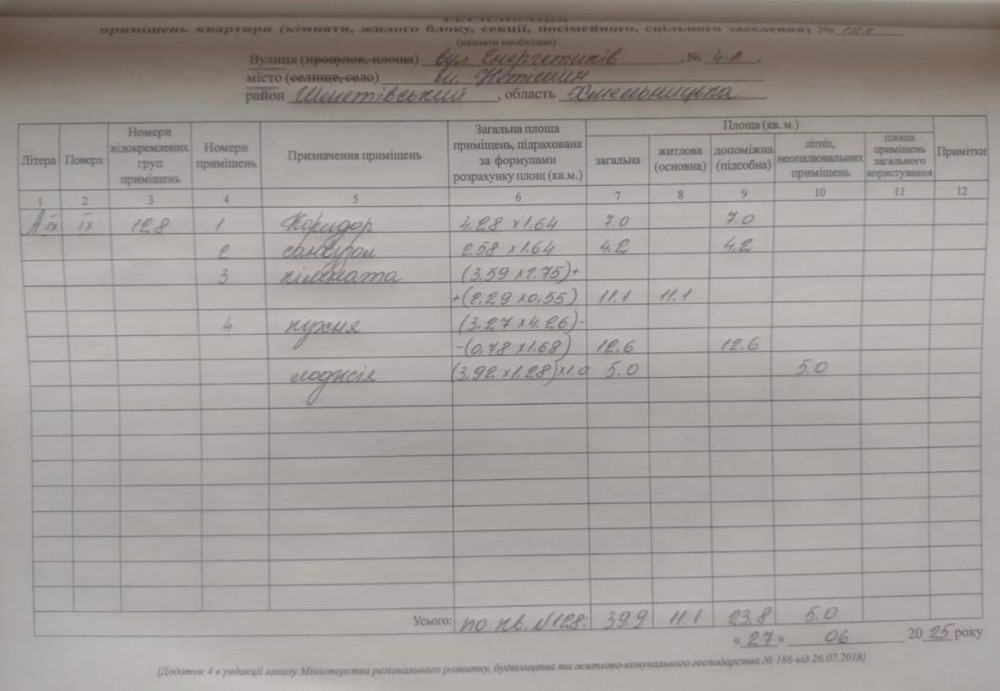 ЕКСПЛІКАЦІЯ
приміщень квартири (кімнати, жилого блоку, секції, посімейного, спільного заселення) № 128
(вказати необхідно)
Вулиця (провулок, площа) вул. Енергетиків, № 4-А,
місто (селище, село) м. Нетішин
район Шепетівський, область Хмельницька
Літера Поверх Номери відокремлених груп приміщень Номери приміщень Призначення приміщень Загальна площа приміщень, підрахована за формулами розрахунку площ (кв.м.) Площа (кв. м.) загальна житлова (основна) допоміжна (підсобна) літніх, неопалювальних приміщень площа приміщень загального користування Примітки
1 2 3 4 5 6 7 8 9 10 11 12
А ІХ ІХ 128 1 Коридор 4.28 х 1.64 7.0 7.0
2 санвузол 2.58 х 1.64 4.2 4.2
3 кімната (3.59 х 2.75)+
+(2.29 х 0.55) 11.1 11.1
4 кухня (3.27 х 4.26)-
-(0,78 х 1.68) 12.6 12.6
лоджія (3,92 х 1.28) х 1.0 5.0 5.0
Усього: по кв. №128: 39.9 11.1 23.8 5.0
« 27 » 06 2025 року
(Додаток 4 в редакції наказу Міністерства регіонального розвитку, будівництва та житлово-комунального господарства № 186 від 26.07.2018)